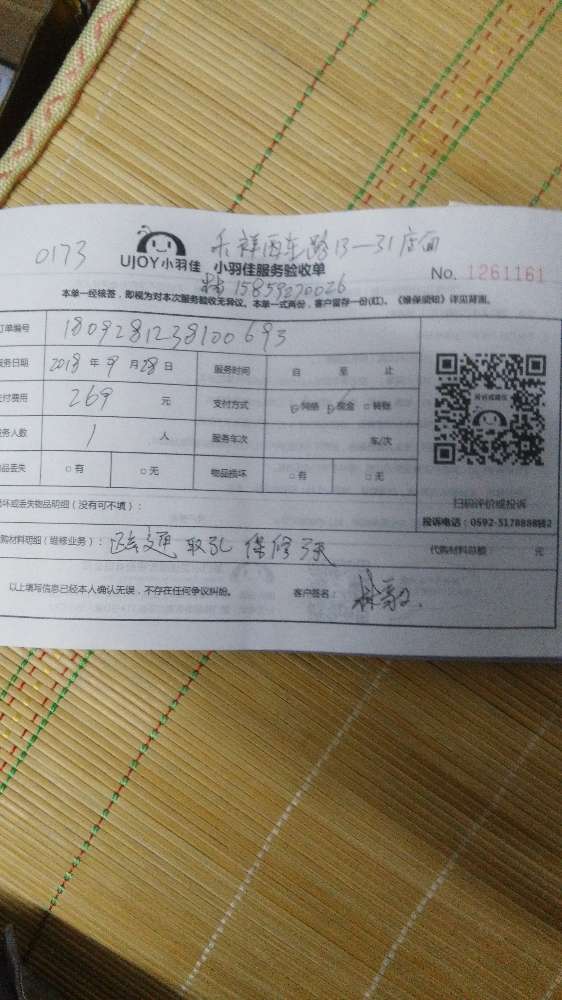 0173
UJOY小羽佳 小羽佳服务验收单
No. 1261161
15859270026
本单一经核签,即视为对本次服务验收无异议。本单一式两份,客户留存一份(红)。《维保须知》详见背面。
订单编号 1809281238100693
服务日期 2018 年 9 月 28 日 服务时间 自 至 止
支付费用 269 元 支付方式 网络 现金 转账
服务人数 1 人 服务车次 车/次
物品丢失 有 无 物品损坏 有 无
损坏或丢失物品明细(没有可不填):
扫码评价或投诉
投诉电话:0592-5178888转2
代购材料明细(维修业务): 疏通 取孔 保修 天
代购材料总额 元
以上填写信息已经本人确认无误,不存在任何争议纠纷。 客户签名: